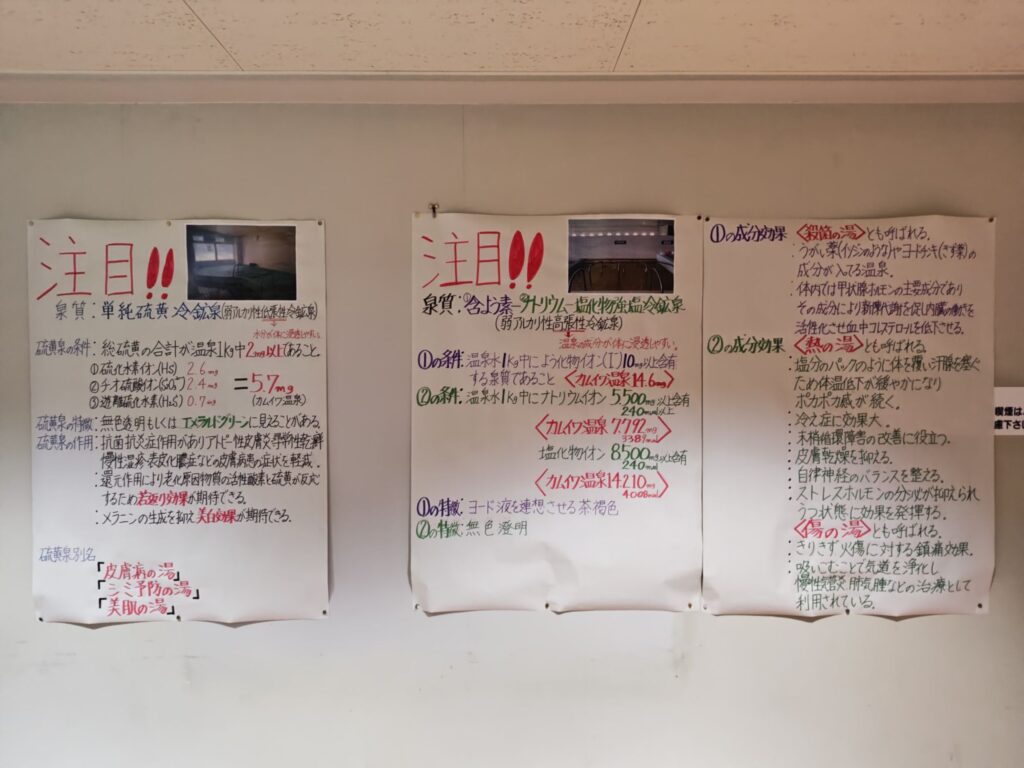 注目!!
泉質:単純硫黄冷鉱泉(弱アルカリ性低張性冷鉱泉)
水分が体に浸透しやすい。
硫黄泉の条件:総硫黄の合計が温泉1kg中2mg以上であること
①硫化水素イオン(HS) 2.6mg
②チオ硫酸イオン 2.4mg =5.7mg
③遊離硫化水素(H₂S) 0.7mg (カムイワ温泉)
硫黄泉の特徴:無色透明もしくはエメラルドグリーンに見えることがある。
硫黄泉の作用:抗菌抗炎症作用がありアトピー性皮膚炎・
慢性湿疹・表皮化膿症などの皮膚病患の症状を軽減。
・還元作用により老化原因物質の活性酸素と硫黄が反応
するため若返り効果が期待できる。
・メラニンの生成を抑え美白効果が期待できる。
硫黄泉別名
「皮膚病の湯」
「シミ予防の湯」
「美肌の湯」
注目!!
泉質:①含よう素-②ナトリウム-塩化物強塩冷鉱泉
(弱アルカリ性高張性冷鉱泉)
温泉の成分が体に浸透しやすい。
①の条件:温泉水1kg中によう化物イオン(I)10mg以上含有
する泉質であること <カムイワ温泉14.6mg>
②の条件:温泉水1kg中にナトリウムイオン5,500mg以上含有
240mval以上
<カムイワ温泉7.792mg
338.9mval>
塩化物イオン8500mg以上含有
240mval
<カムイワ温泉14.210mg
400.8mval>
①の特徴:ヨード液を連想させる茶褐色
②の特徴:無色澄明
①の成分効果 <殺菌の湯>とも呼ばれる。
・うがい薬(イソジンのおなり)やヨードチンキ(きず薬)の
成分が入ってる温泉。
・体内では甲状腺ホルモンの主要成分であり
その成分により新陳代謝を促し内臓の働きを
活性化させ血中コレステロールを低下させる。
②の成分効果 <熱の湯>とも呼ばれる。
・塩分のパックのように体を覆い汗腺を塞ぐ
ため体温低下が緩やかになり
ポカポカ感が続く。
・冷え症に効果大。
・末梢循環障害の改善に役立つ。
・皮膚乾燥を抑える。
・自律神経のバランスを整える。
・ストレスホルモンの分泌が抑えられ
うつ状態に効果を発揮する。
<傷の湯>とも呼ばれる。
・きりきず火傷に対する鎮痛効果。
・吸いこむことで気道を浄化し
慢性気管支炎・肺気腫などの治療として
利用されている。
喫煙は
慮下さい